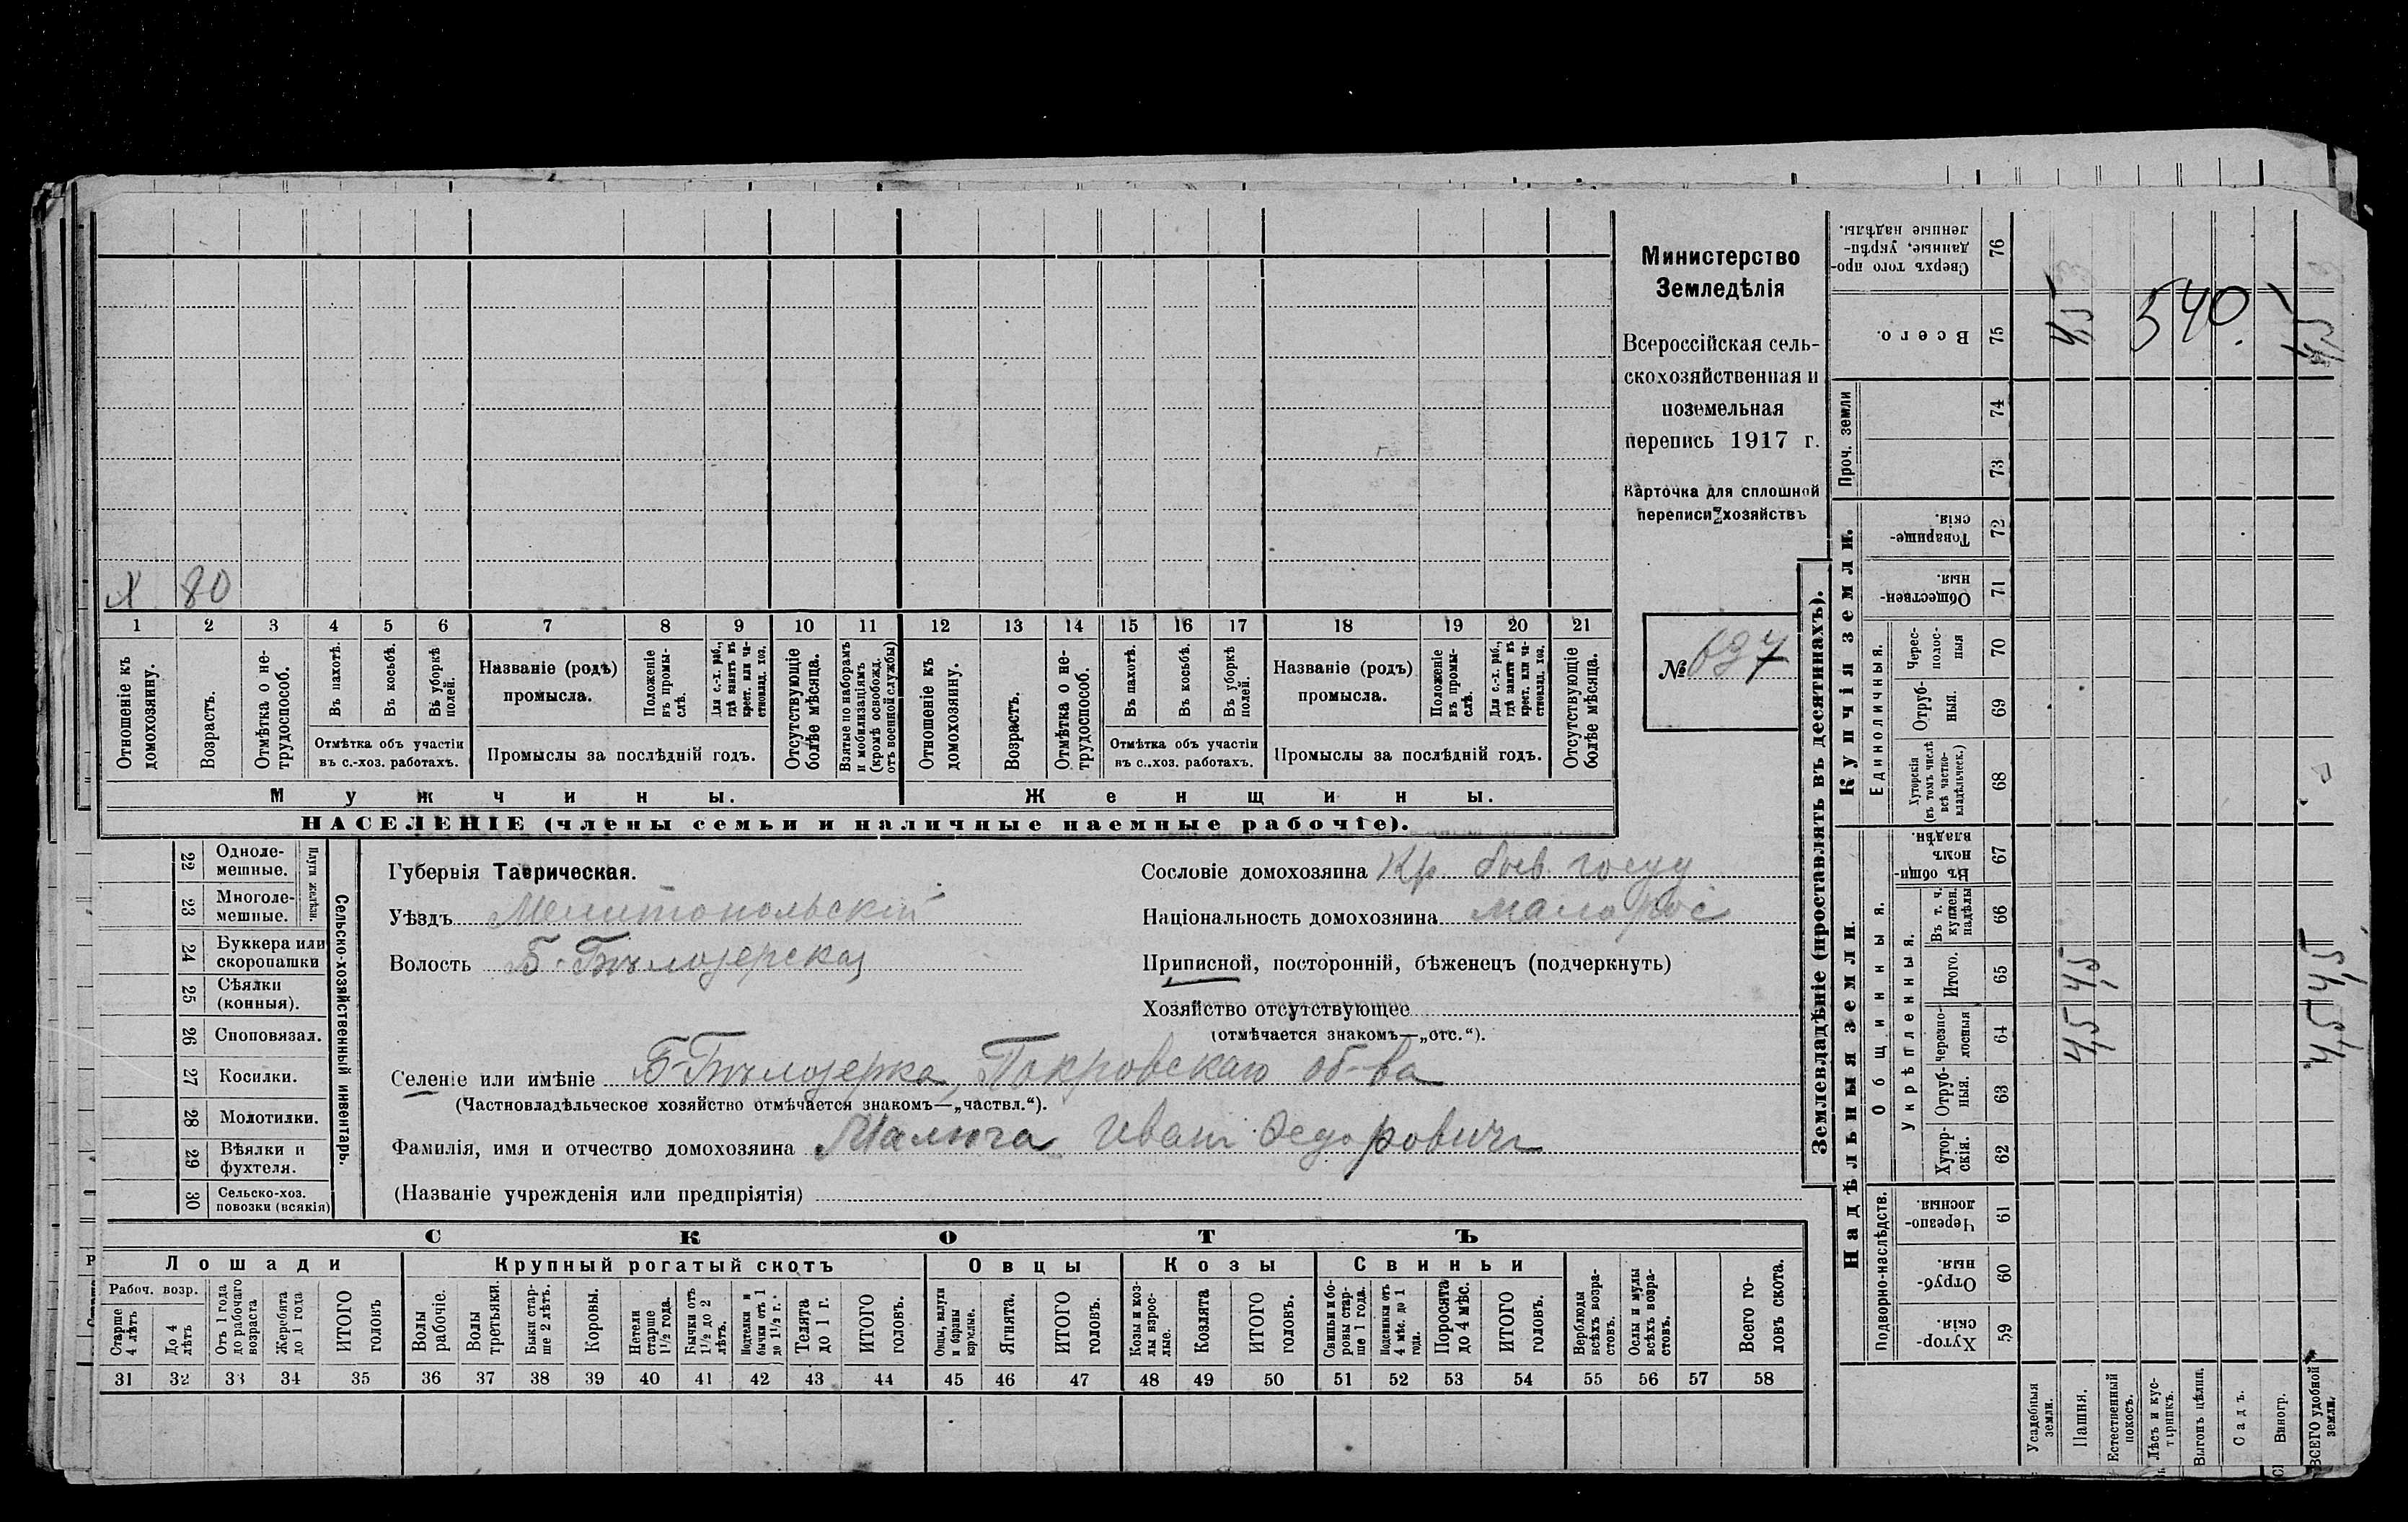 Министерство
Земледѣлія
Всероссійская сель-
скохозяйственная и
поземельная
перепись 1917 г.
Карточка для сплошной
переписи хозяйствъ
№ 697
X 80
1 2 3 4 5 6 7 8 9 10 11 12 13 14 15 16 17 18 19 20 21
Отношеніе къ домохозяину.
Возрастъ.
Отмѣтка о не-трудоспособ.
Въ пахотѣ.
Въ косьбѣ.
Въ уборкѣ полей.
Отмѣтка объ участіи
въ с.-хоз. работахъ.
Названіе (родъ)
промысла.
Положеніе въ промы-слѣ.
Для с.-х. раб., гдѣ занятъ въ крест. или ча-стновлад. хоз.
Промыслы за послѣдній годъ.
Отсутствующіе болѣе мѣсяца.
Взятые по наборамъ и мобилизаціямъ (кромѣ освобожд. отъ военной службы)
Отношеніе къ домохозяину.
Возрастъ.
Отмѣтка о не-трудоспособ.
Въ пахотѣ.
Въ косьбѣ.
Въ уборкѣ полей.
Отмѣтка объ участіи
въ с.-хоз. работахъ.
Названіе (родъ)
промысла.
Положеніе въ промы-слѣ.
Для с.-х. раб., гдѣ занята въ крест. или ча-стновлад. хоз.
Промыслы за послѣдній годъ.
Отсутствующіе болѣе мѣсяца.
Мужчины. Женщины.
НАСЕЛЕНІЕ (члены семьи и наличные наемные рабочіе).
Сельско-хозяйственный инвентарь.
Плуги желѣзн.
22 Одноле-мешные.
23 Многоле-мешные.
24 Буккера или скоропашки
25 Сѣялки (конныя).
26 Сноповязал.
27 Косилки.
28 Молотилки.
29 Вѣялки и фухтеля.
30 Сельско-хоз. повозки (всякія)
Губернія Таврическая.
Уѣздъ Мелитопольскій
Волость Б-Бѣлозерская
Сословіе домохозяина Кр. быв. госуд
Національность домохозяина малорос
Приписной, посторонній, бѣженецъ (подчеркнуть)
Хозяйство отсутствующее
(отмѣчается знакомъ—„отс.“).
Селеніе или имѣніе Б-Бѣлозерка, Покровскаго об-ва
(Частновладѣльческое хозяйство отмѣчается знакомъ—„частвл.“).
Фамилія, имя и отчество домохозяина Малюга Иванъ Федоровичъ
(Названіе учрежденія или предпріятія)
СКОТЪ
Лошади Крупный рогатый скотъ Овцы Козы Свиньи
Рабоч. возр.
Старше 4 лѣтъ
До 4 лѣтъ
Отъ 1 года до рабочаго возраста
Жеребята до 1 года
ИТОГО головъ
Волы рабочіе.
Волы третьяки.
Быки стар-ше 2 лѣтъ.
Коровы.
Нетели старше 1½ года.
Бычки отъ 1½ до 2 лѣтъ.
Подтелки и бычки отъ 1 до 1½ г.
Телята до 1 г.
ИТОГО головъ.
Овцы, валухи и бараны взрослые.
Ягнята.
ИТОГО головъ.
Козы и коз-лы взрос-лые.
Козлята
ИТОГО головъ.
Свиньи и бо-ровы стар-ше 1 года.
Подсвинки отъ 4 мѣс. до 1 года.
Поросята до 4 мѣс.
ИТОГО головъ.
Верблюды всѣхъ возра-стовъ.
Ослы и мулы всѣхъ возра-стовъ.
Всего го-ловъ скота.
31 32 33 34 35 36 37 38 39 40 41 42 43 44 45 46 47 48 49 50 51 52 53 54 55 56 57 58
Землевладѣніе (проставлять въ десятинахъ).
Надѣльныя земли.
Купчія земли.
Проч. земли
Подворно-наслѣдств.
Общинныя.
Укрѣпленныя.
Единоличныя.
Сверхъ того про-данные, укрѣп-ленные надѣлы. 76
Всего. 75 4,5 540. 4,5
74
73
Товарище-скія. 72
Обществен-ныя. 71
Черес-полос-ныя 70
Отруб-ныя. 69
Хуторскія (въ томъ числѣ всѣ частно-владѣльческ.) 68
Въ общин-номъ владѣн. 67
Въ т. ч. куплен. надѣлы 66
Итого. 65 4,5 4,5
Черезпо-лосныя 64 4,5 4,5
Отруб-ныя. 63
Хутор-скія. 62
Черезпо-лосныя. 61
Отруб-ныя. 60
Хутор-скія. 59
Усадебныя земли.
Пашня.
Естественный покосъ.
Лѣсъ и кус-тарникъ.
Выгонъ цѣлин.
Садъ.
Виногр.
ВСЕГО удобной земли.